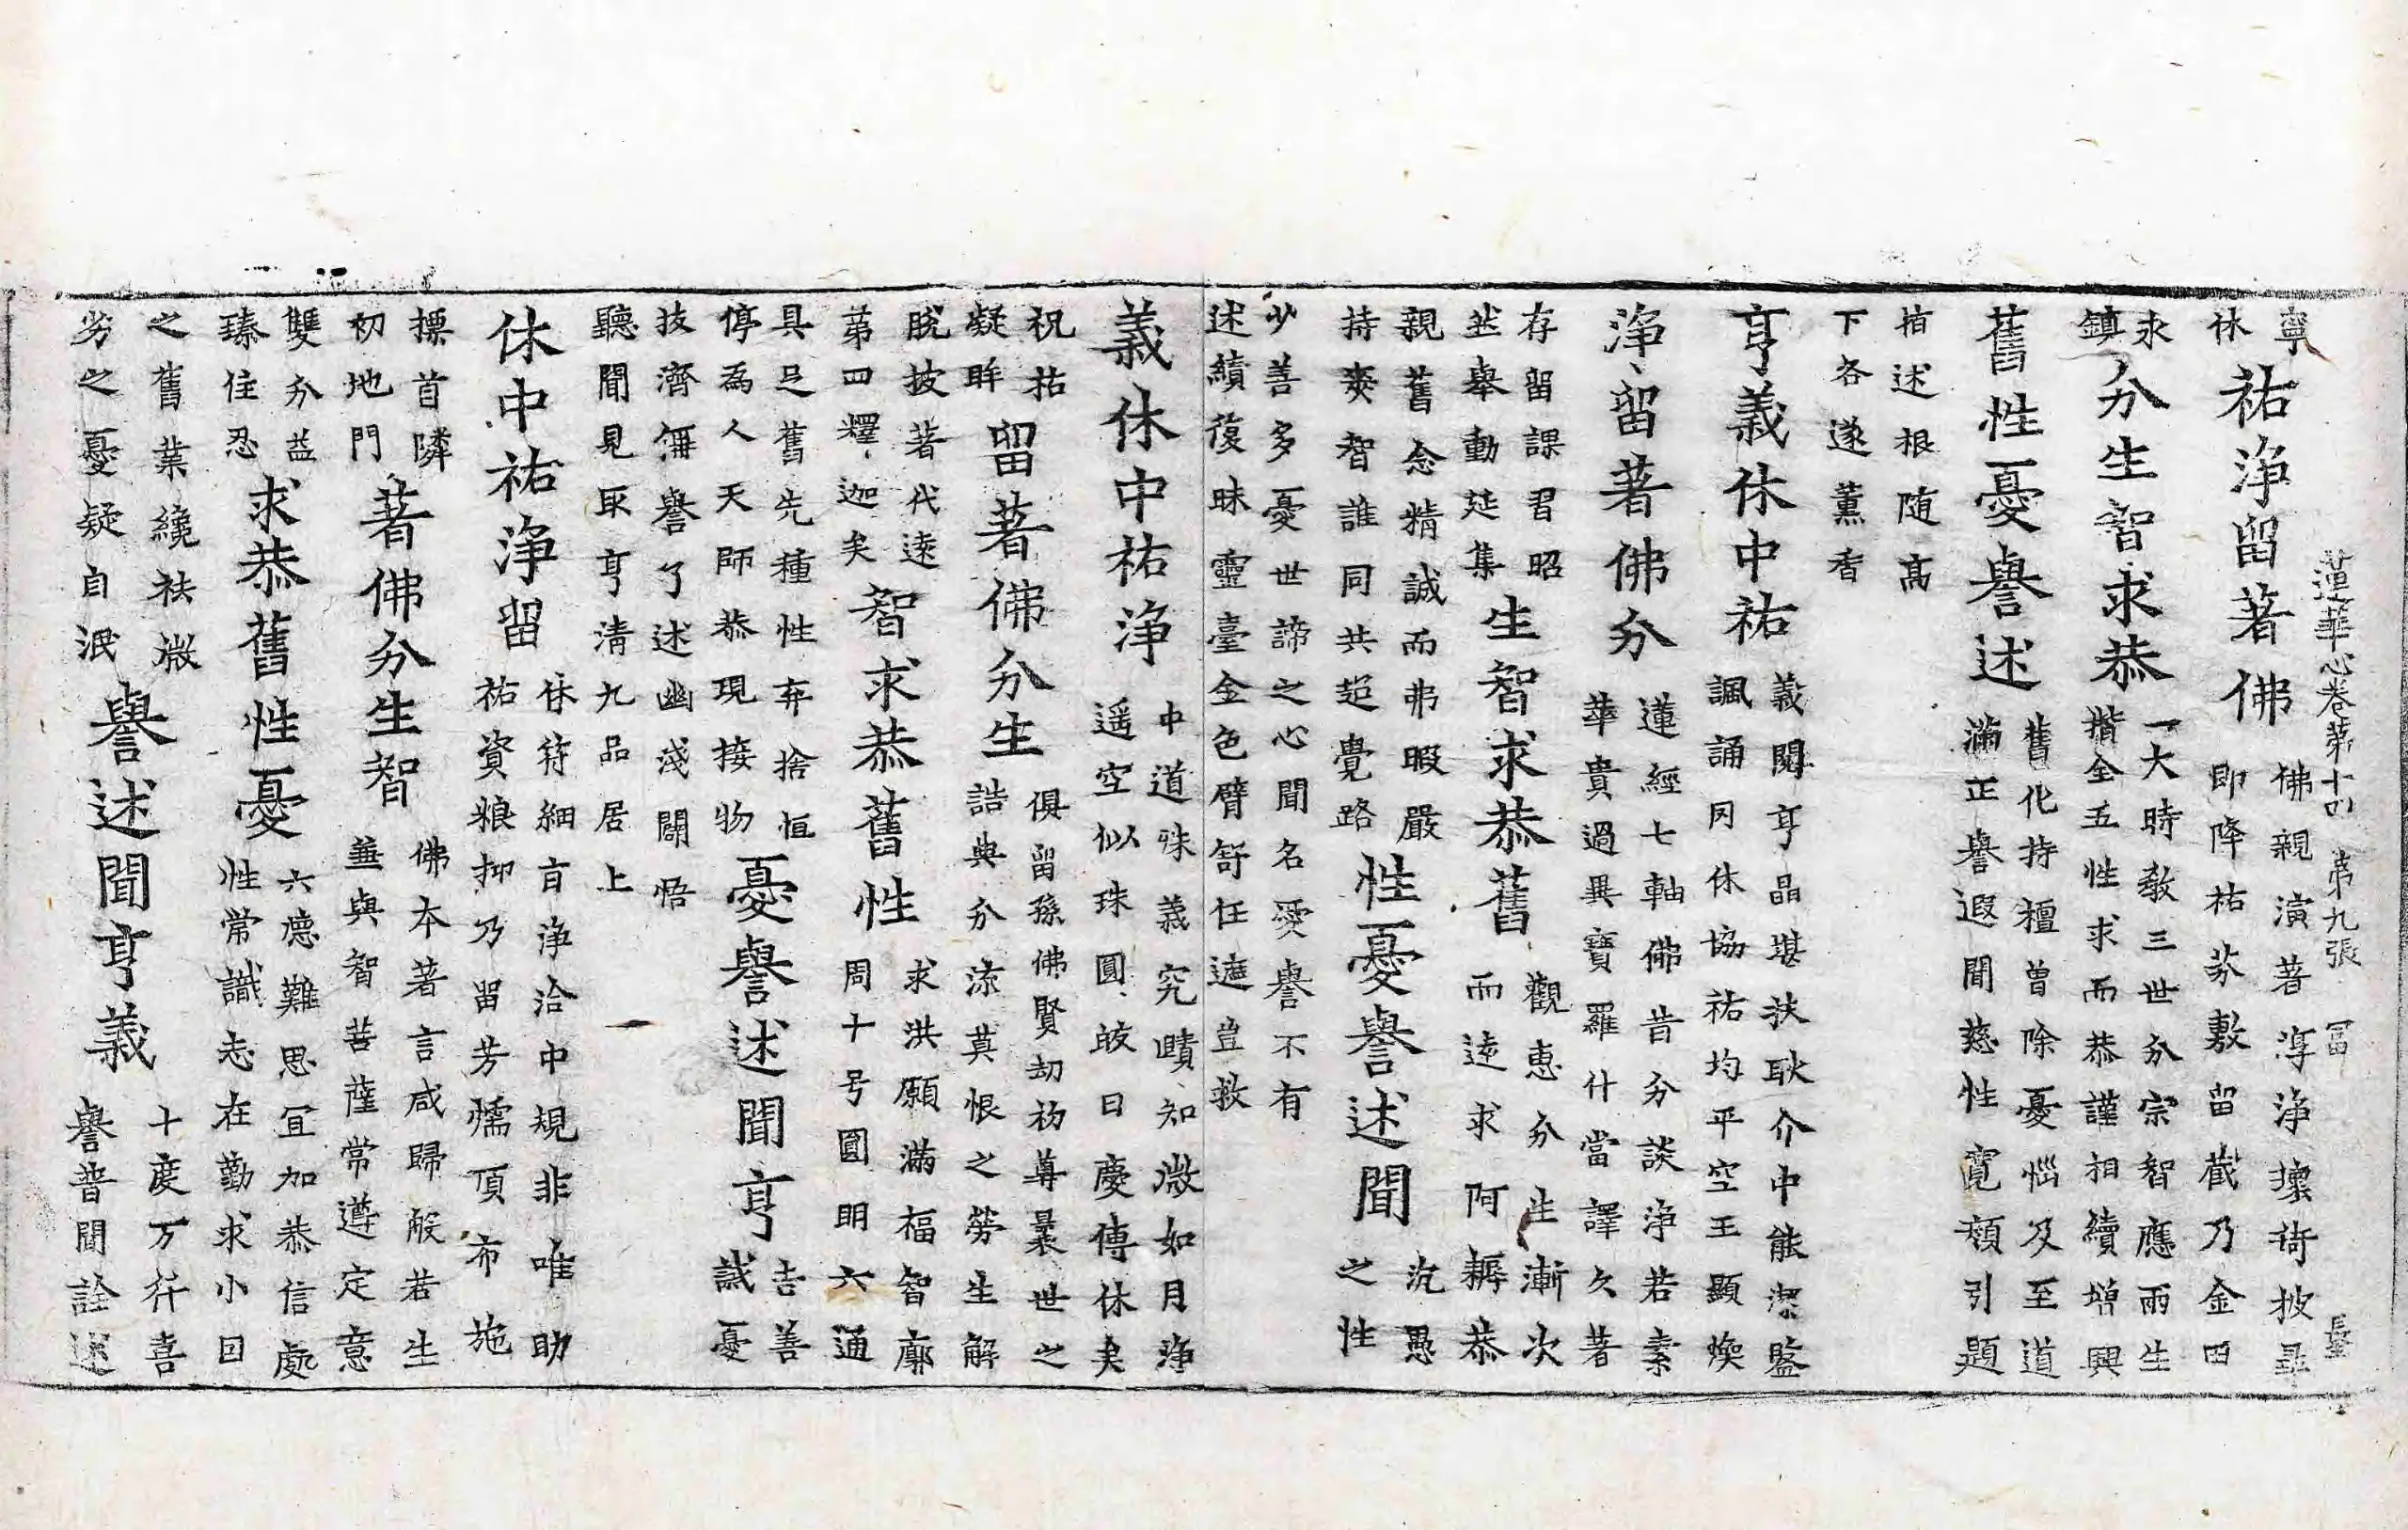 蓮華心卷第十四 第九張 冨 長臺
寧
休
祐淨留著佛
佛親演著淳淨壞琦披尋
即降祐芬敷留截乃金田
永
鎮
分生智求恭
一大時教三世分宗智應雨生
揩全五性求而恭謹相續增興
舊性憂譽述
舊化持檀曾除憂惱及至道
滿正譽遐聞慈性寬頰引題
栢述根随高
下各遂薰香
亨義休中祐
義閱亨晶堪扶耿介中能潔監
諷誦冈休協祐均平空王顯煥
淨留著佛分
蓮經七軸佛昔分談淨若素
華貴過異寶羅什當譯久著
存留課君昭
然舉動延集
生智求恭舊
觀惠分生漸次
而逺求阿耨恭
親舊念精誠而弗暇嚴
持爽智誰同共超覺路
性憂譽述聞
沉愚
之性
少善多憂世諦之心聞名愛譽不有
述績復昧靈臺金色臂舒任遮豈救
義休中祐淨
中道殊義究賾知微如月淨
遥空似珠圓皎日慶傳休矣
祝祐
凝眸
留著佛分生
俱留孫佛賢劫初尊曩世之
誥典分流莫恨之勞生解
脱披著代逺
第四釋迦矣
智求恭舊性
求洪願滿福智廓
周十号圓明六通
具足舊先種性弃捨恒
停為人天師恭現接物
憂譽述聞亨
吉善
誡憂
技濟無譽了述幽淺闢悟
聽聞見取亨清九品居上
休中祐淨留
休符細肓淨洽中規非唯助
祐資粮抑乃留芳懦頂布施
摽首隣
初地門
著佛分生智
佛本著言咸歸般若生
並與智菩薩常遵定意
雙分益
臻住忍
求恭舊性憂
六德難思冝加恭信處
性常識志在勤求小回
之舊業纔祛微
劣之憂疑自泯
譽述聞亨義
十度万行喜
譽普聞詮述